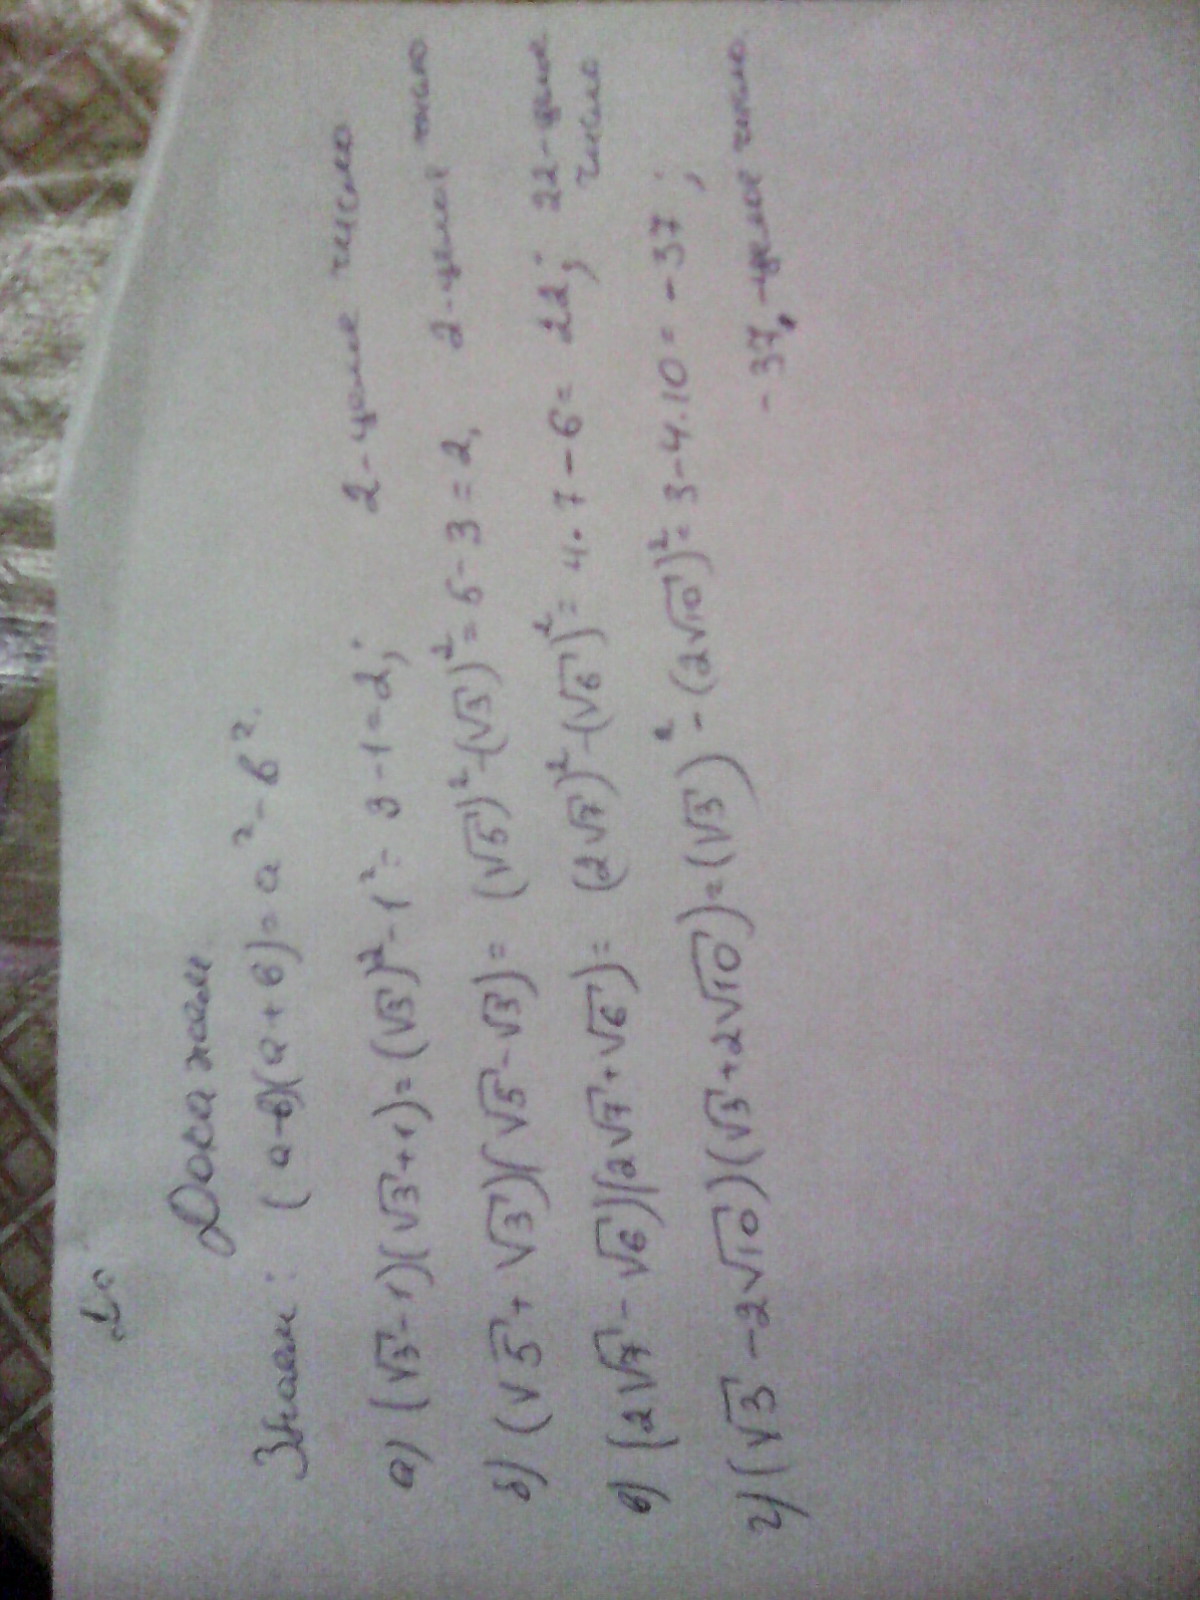 Докажем
Знаем: (a-в)(a+в)=a²-в².
а) (√3-1)(√3+1)=(√3)²-1²=3-1=2; 2-целое число
б) (√5+√3)(√5-√3)=(√5)²-(√3)²=5-3=2, 2-целое число
в) (2√7-√6)(2√7+√6)=(2√7)²-(√6)²=4·7-6=22; 22-целое
число
г) (√3-2√10)(√3+2√10)=(√3)²-(2√10)²=3-4.10=-37;
-37,-целое число.